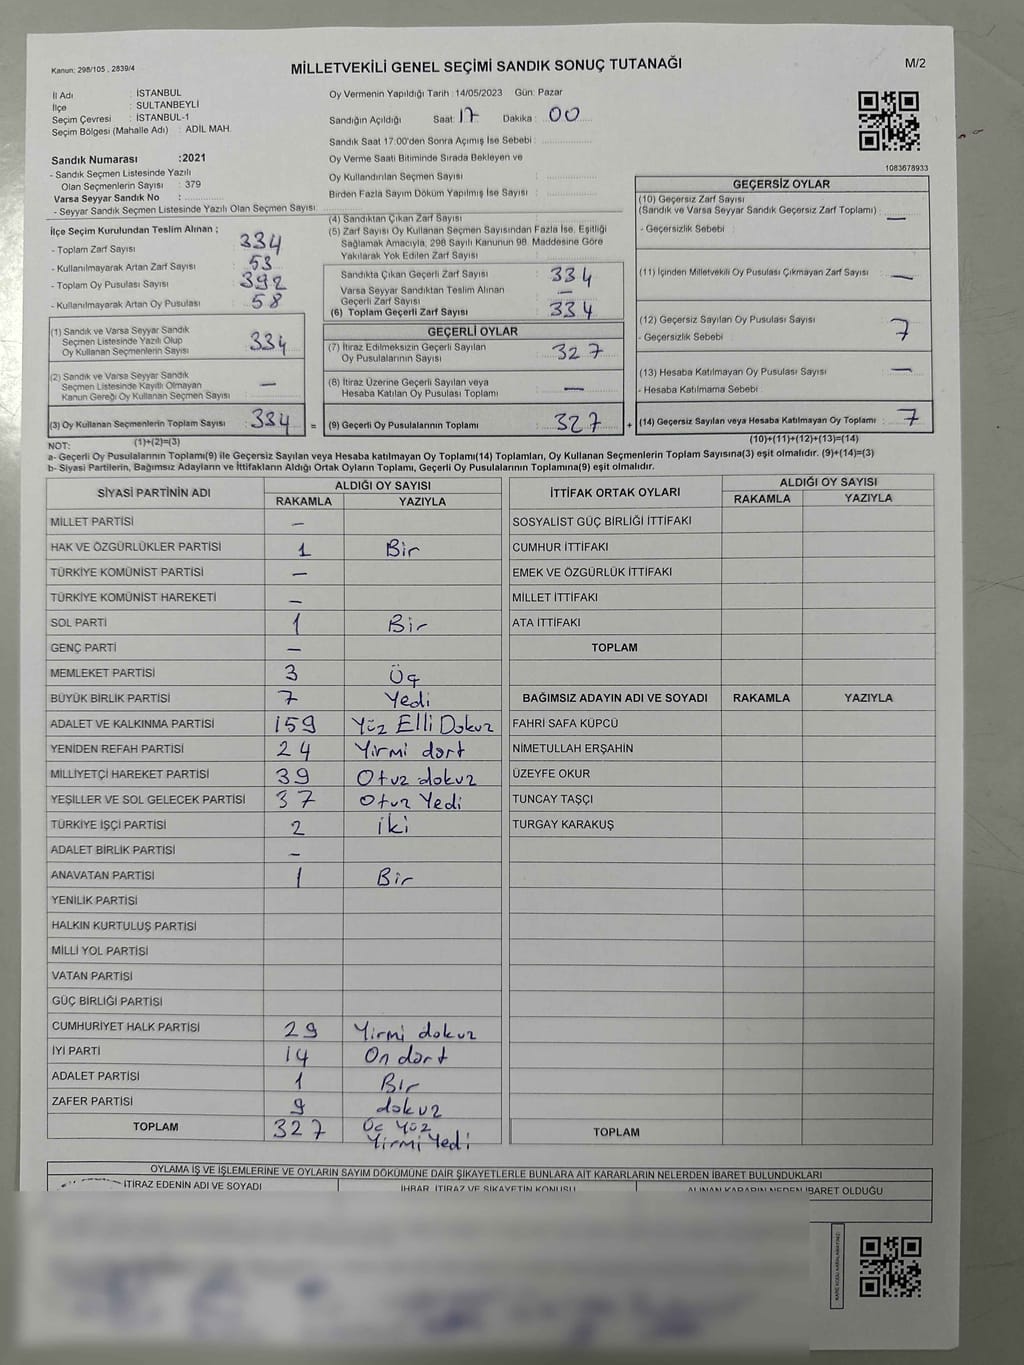 Kanun: 298/105 , 2839/4
MİLLETVEKİLİ GENEL SEÇİMİ SANDIK SONUÇ TUTANAĞI
M/2
İl Adı : İSTANBUL
İlçe : SULTANBEYLİ
Seçim Çevresi : İSTANBUL-1
Seçim Bölgesi (Mahalle Adı) : ADİL MAH.
Sandık Numarası :2021
- Sandık Seçmen Listesinde Yazılı
Olan Seçmenlerin Sayısı : 379
Varsa Seyyar Sandık No :
- Seyyar Sandık Seçmen Listesinde Yazılı Olan Seçmen Sayısı:
Oy Vermenin Yapıldığı Tarih :14/05/2023 Gün: Pazar
Sandığın Açıldığı Saat: 17 Dakika : 00
Sandık Saat 17:00'den Sonra Açımış İse Sebebi :
Oy Verme Saati Bitiminde Sırada Bekleyen ve
Oy Kullandırılan Seçmen Sayısı :
Birden Fazla Sayım Döküm Yapılmış İse Sayısı :
1083678933
İlçe Seçim Kurulundan Teslim Alınan ;
- Toplam Zarf Sayısı : 334
- Kullanılmayarak Artan Zarf Sayısı : 53
- Toplam Oy Pusulası Sayısı : 392
- Kullanılmayarak Artan Oy Pusulası : 58
(1) Sandık ve Varsa Seyyar Sandık
Seçmen Listesinde Yazılı Olup
Oy Kullanan Seçmenlerin Sayısı : 334
(2) Sandık ve Varsa Seyyar Sandık
Seçmen Listesinde Kayıtlı Olmayan
Kanun Gereği Oy Kullanan Seçmen Sayısı : —
(3) Oy Kullanan Seçmenlerin Toplam Sayısı : 334 =
(1)+(2)=(3)
(4) Sandıktan Çıkan Zarf Sayısı :
(5) Zarf Sayısı Oy Kullanan Seçmen Sayısından Fazla İse, Eşitliği
Sağlamak Amacıyla, 298 Sayılı Kanunun 98. Maddesine Göre
Yakılarak Yok Edilen Zarf Sayısı :
Sandıkta Çıkan Geçerli Zarf Sayısı : 334
Varsa Seyyar Sandıktan Teslim Alınan
Geçerli Zarf Sayısı : —
(6) Toplam Geçerli Zarf Sayısı : 334
GEÇERLİ OYLAR
(7) İtiraz Edilmeksizin Geçerli Sayılan
Oy Pusulalarının Sayısı : 327
(8) İtiraz Üzerine Geçerli Sayılan veya
Hesaba Katılan Oy Pusulası Toplamı : —
(9) Geçerli Oy Pusulalarının Toplamı : 327 +
GEÇERSİZ OYLAR
(10) Geçersiz Zarf Sayısı
(Sandık ve Varsa Seyyar Sandık Geçersiz Zarf Toplamı) : —
- Geçersizlik Sebebi :
(11) İçinden Milletvekili Oy Pusulası Çıkmayan Zarf Sayısı : —
(12) Geçersiz Sayılan Oy Pusulası Sayısı : 7
- Geçersizlik Sebebi :
(13) Hesaba Katılmayan Oy Pusulası Sayısı : —
- Hesaba Katılmama Sebebi :
(14) Geçersiz Sayılan veya Hesaba Katılmayan Oy Toplamı : 7
(10)+(11)+(12)+(13)=(14)
NOT:
a- Geçerli Oy Pusulalarının Toplamı(9) ile Geçersiz Sayılan veya Hesaba katılmayan Oy Toplamı(14) Toplamları, Oy Kullanan Seçmenlerin Toplam Sayısına(3) eşit olmalıdır. (9)+(14)=(3)
b- Siyasi Partilerin, Bağımsız Adayların ve İttifakların Aldığı Ortak Oyların Toplamı, Geçerli Oy Pusulalarının Toplamına(9) eşit olmalıdır.
SİYASİ PARTİNİN ADI ALDIĞI OY SAYISI
RAKAMLA YAZIYLA
MİLLET PARTİSİ —
HAK VE ÖZGÜRLÜKLER PARTİSİ 1 Bir
TÜRKİYE KOMÜNİST PARTİSİ —
TÜRKİYE KOMÜNİST HAREKETİ —
SOL PARTİ 1 Bir
GENÇ PARTİ —
MEMLEKET PARTİSİ 3 Üç
BÜYÜK BİRLİK PARTİSİ 7 Yedi
ADALET VE KALKINMA PARTİSİ 159 Yüz Elli Dokuz
YENİDEN REFAH PARTİSİ 24 Yirmi dört
MİLLİYETÇİ HAREKET PARTİSİ 39 Otuz dokuz
YEŞİLLER VE SOL GELECEK PARTİSİ 37 Otuz Yedi
TÜRKİYE İŞÇİ PARTİSİ 2 iki
ADALET BİRLİK PARTİSİ —
ANAVATAN PARTİSİ 1 Bir
YENİLİK PARTİSİ
HALKIN KURTULUŞ PARTİSİ
MİLLİ YOL PARTİSİ
VATAN PARTİSİ
GÜÇ BİRLİĞİ PARTİSİ
CUMHURİYET HALK PARTİSİ 29 Yirmi dokuz
İYİ PARTİ 14 On dört
ADALET PARTİSİ 1 Bir
ZAFER PARTİSİ 9 dokuz
TOPLAM 327 Üç Yüz
Yirmi Yedi
İTTİFAK ORTAK OYLARI ALDIĞI OY SAYISI
RAKAMLA YAZIYLA
SOSYALİST GÜÇ BİRLİĞİ İTTİFAKI
CUMHUR İTTİFAKI
EMEK VE ÖZGÜRLÜK İTTİFAKI
MİLLET İTTİFAKI
ATA İTTİFAKI
TOPLAM
BAĞIMSIZ ADAYIN ADI VE SOYADI RAKAMLA YAZIYLA
FAHRİ SAFA KÜPCÜ
NİMETULLAH ERŞAHİN
ÜZEYFE OKUR
TUNCAY TAŞÇI
TURGAY KARAKUŞ
TOPLAM
OYLAMA İŞ VE İŞLEMLERİNE VE OYLARIN SAYIM DÖKÜMÜNE DAİR ŞİKAYETLERLE BUNLARA AİT KARARLARIN NELERDEN İBARET BULUNDUKLARI
İTİRAZ EDENİN ADI VE SOYADI İHBAR, İTİRAZ VE ŞİKAYETİN KONUSU ALINAN KARARIN NEDEN İBARET OLDUĞU